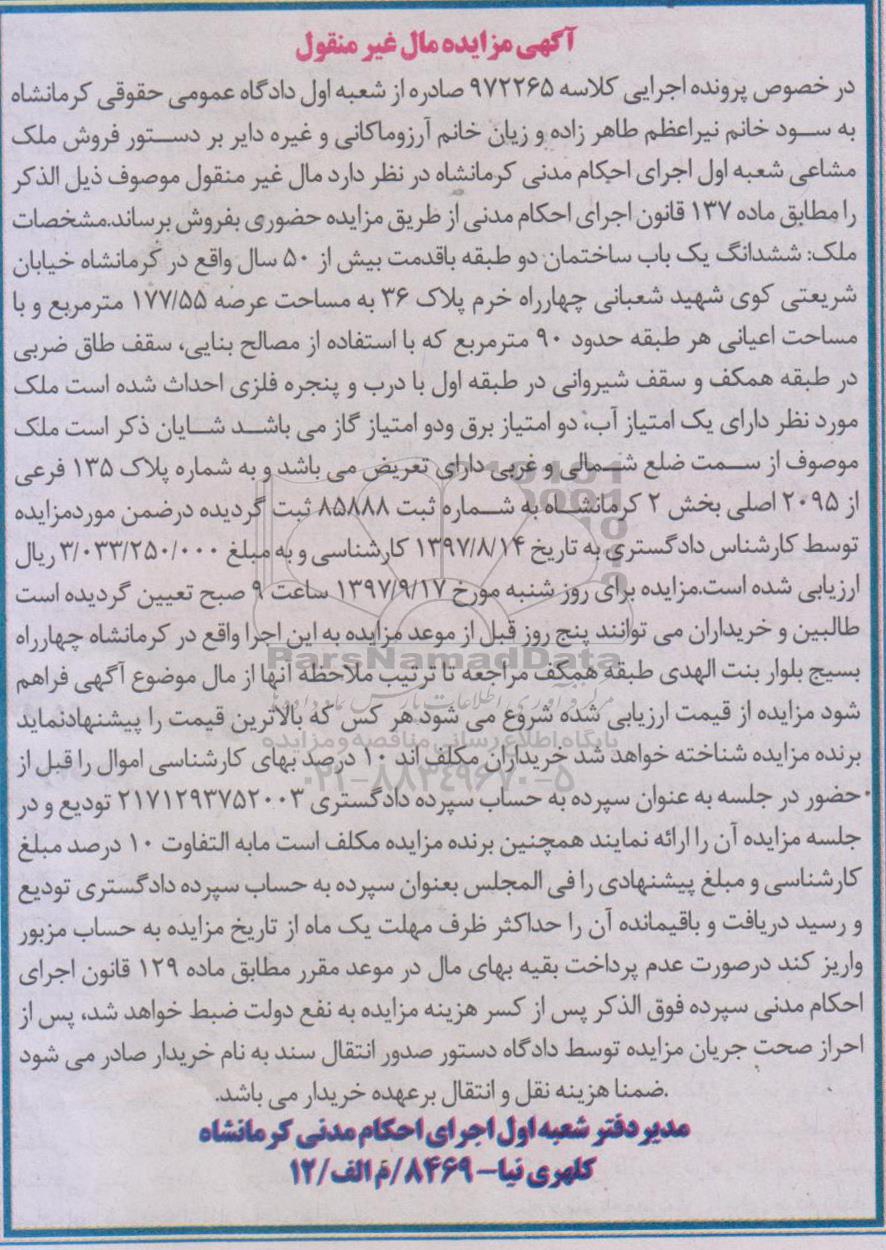 آگهی مزایده مال غیر منقول
در خصوص پرونده اجرایی کلاسه ۹۷۲۲۶۵ صادره از شعبه اول دادگاه عمومی حقوقی کرمانشاه
به سود خانم نیراعظم طاهر زاده و زیان خانم آرزوماکانی و غیره دایر بر دستور فروش ملک
مشاعی شعبه اول اجرای احکام مدنی کرمانشاه در نظر دارد مال غیر منقول موصوف ذیل الذکر
را مطابق ماده ۱۳۷ قانون اجرای احکام مدنی از طریق مزایده حضوری بفروش برساند.مشخصات
ملک: ششدانگ یک باب ساختمان دو طبقه باقدمت بیش از ۵۰ سال واقع در کرمانشاه خیابان
شریعتی کوی شهید شعبانی چهارراه خرم پلاک ۳۶ به مساحت عرصه ۱۷۷/۵۵ مترمربع و با
مساحت اعیانی هر طبقه حدود ۹۰ مترمربع که با استفاده از مصالح بنایی، سقف طاق ضربی
در طبقه همکف و سقف شیروانی در طبقه اول با درب و پنجره فلزی احداث شده است ملک
مورد نظر دارای یک امتیاز آب، دو امتیاز برق ودو امتیاز گاز می باشد شایان ذکر است ملک
موصوف از سمت ضلع شمالی و غربی دارای تعریض می باشد و به شماره پلاک ۱۳۵ فرعی
از ۲۰۹۵ اصلی بخش ۲ کرمانشاه به شماره ثبت ۸۵۸۸۸ ثبت گردیده درضمن موردمزایده
توسط کارشناس دادگستری به تاریخ ۱۳۹۷/۸/۱۴ کارشناسی و به مبلغ ۳/۰۳۳/۲۵۰/۰۰۰ ریال
ارزیابی شده است.مزایده برای روز شنبه مورخ ۱۳۹۷/۹/۱۷ ساعت ۹ صبح تعیین گردیده است
طالبین و خریداران می توانند پنج روز قبل از موعد مزایده به این اجرا واقع در کرمانشاه چهارراه
بسیج بلوار بنت الهدی طبقه همکف مراجعه تا ترتیب ملاحظه آنها از مال موضوع آگهی فراهم
شود مزایده از قیمت ارزیابی شده شروع می شود هر کس که بالاترین قیمت را پیشنهادنماید
برنده مزایده شناخته خواهد شد خریداران مکلف اند ۱۰ درصد بهای کارشناسی اموال را قبل از
حضور در جلسه به عنوان سپرده به حساب سپرده دادگستری ۲۱۷۱۲۹۳۷۵۲۰۰۳ تودیع و در
جلسه مزایده آن را ارائه نمایند همچنین برنده مزایده مکلف است مابه التفاوت ۱۰ درصد مبلغ
کارشناسی و مبلغ پیشنهادی را فی المجلس بعنوان سپرده به حساب سپرده دادگستری تودیع
و رسید دریافت و باقیمانده آن را حداکثر ظرف مهلت یک ماه از تاریخ مزایده به حساب مزبور
واریز کند درصورت عدم پرداخت بقیه بهای مال در موعد مقرر مطابق ماده ۱۲۹ قانون اجرای
احکام مدنی سپرده فوق الذکر پس از کسر هزینه مزایده به نفع دولت ضبط خواهد شد، پس از
احراز صحت جریان مزایده توسط دادگاه دستور صدور انتقال سند به نام خریدار صادر می شود
.ضمنا هزینه نقل و انتقال برعهده خریدار می باشد.
مدیر دفتر شعبه اول اجرای احکام مدنی کرمانشاه
کلهری نیا– ۸۴۶۹/م الف/۱۲
ParsNamadData
پایگاه اطلاع رسانی مناقصه و مزایده
۰۲۱-۸۸۳۴۹۶۷۰-۵